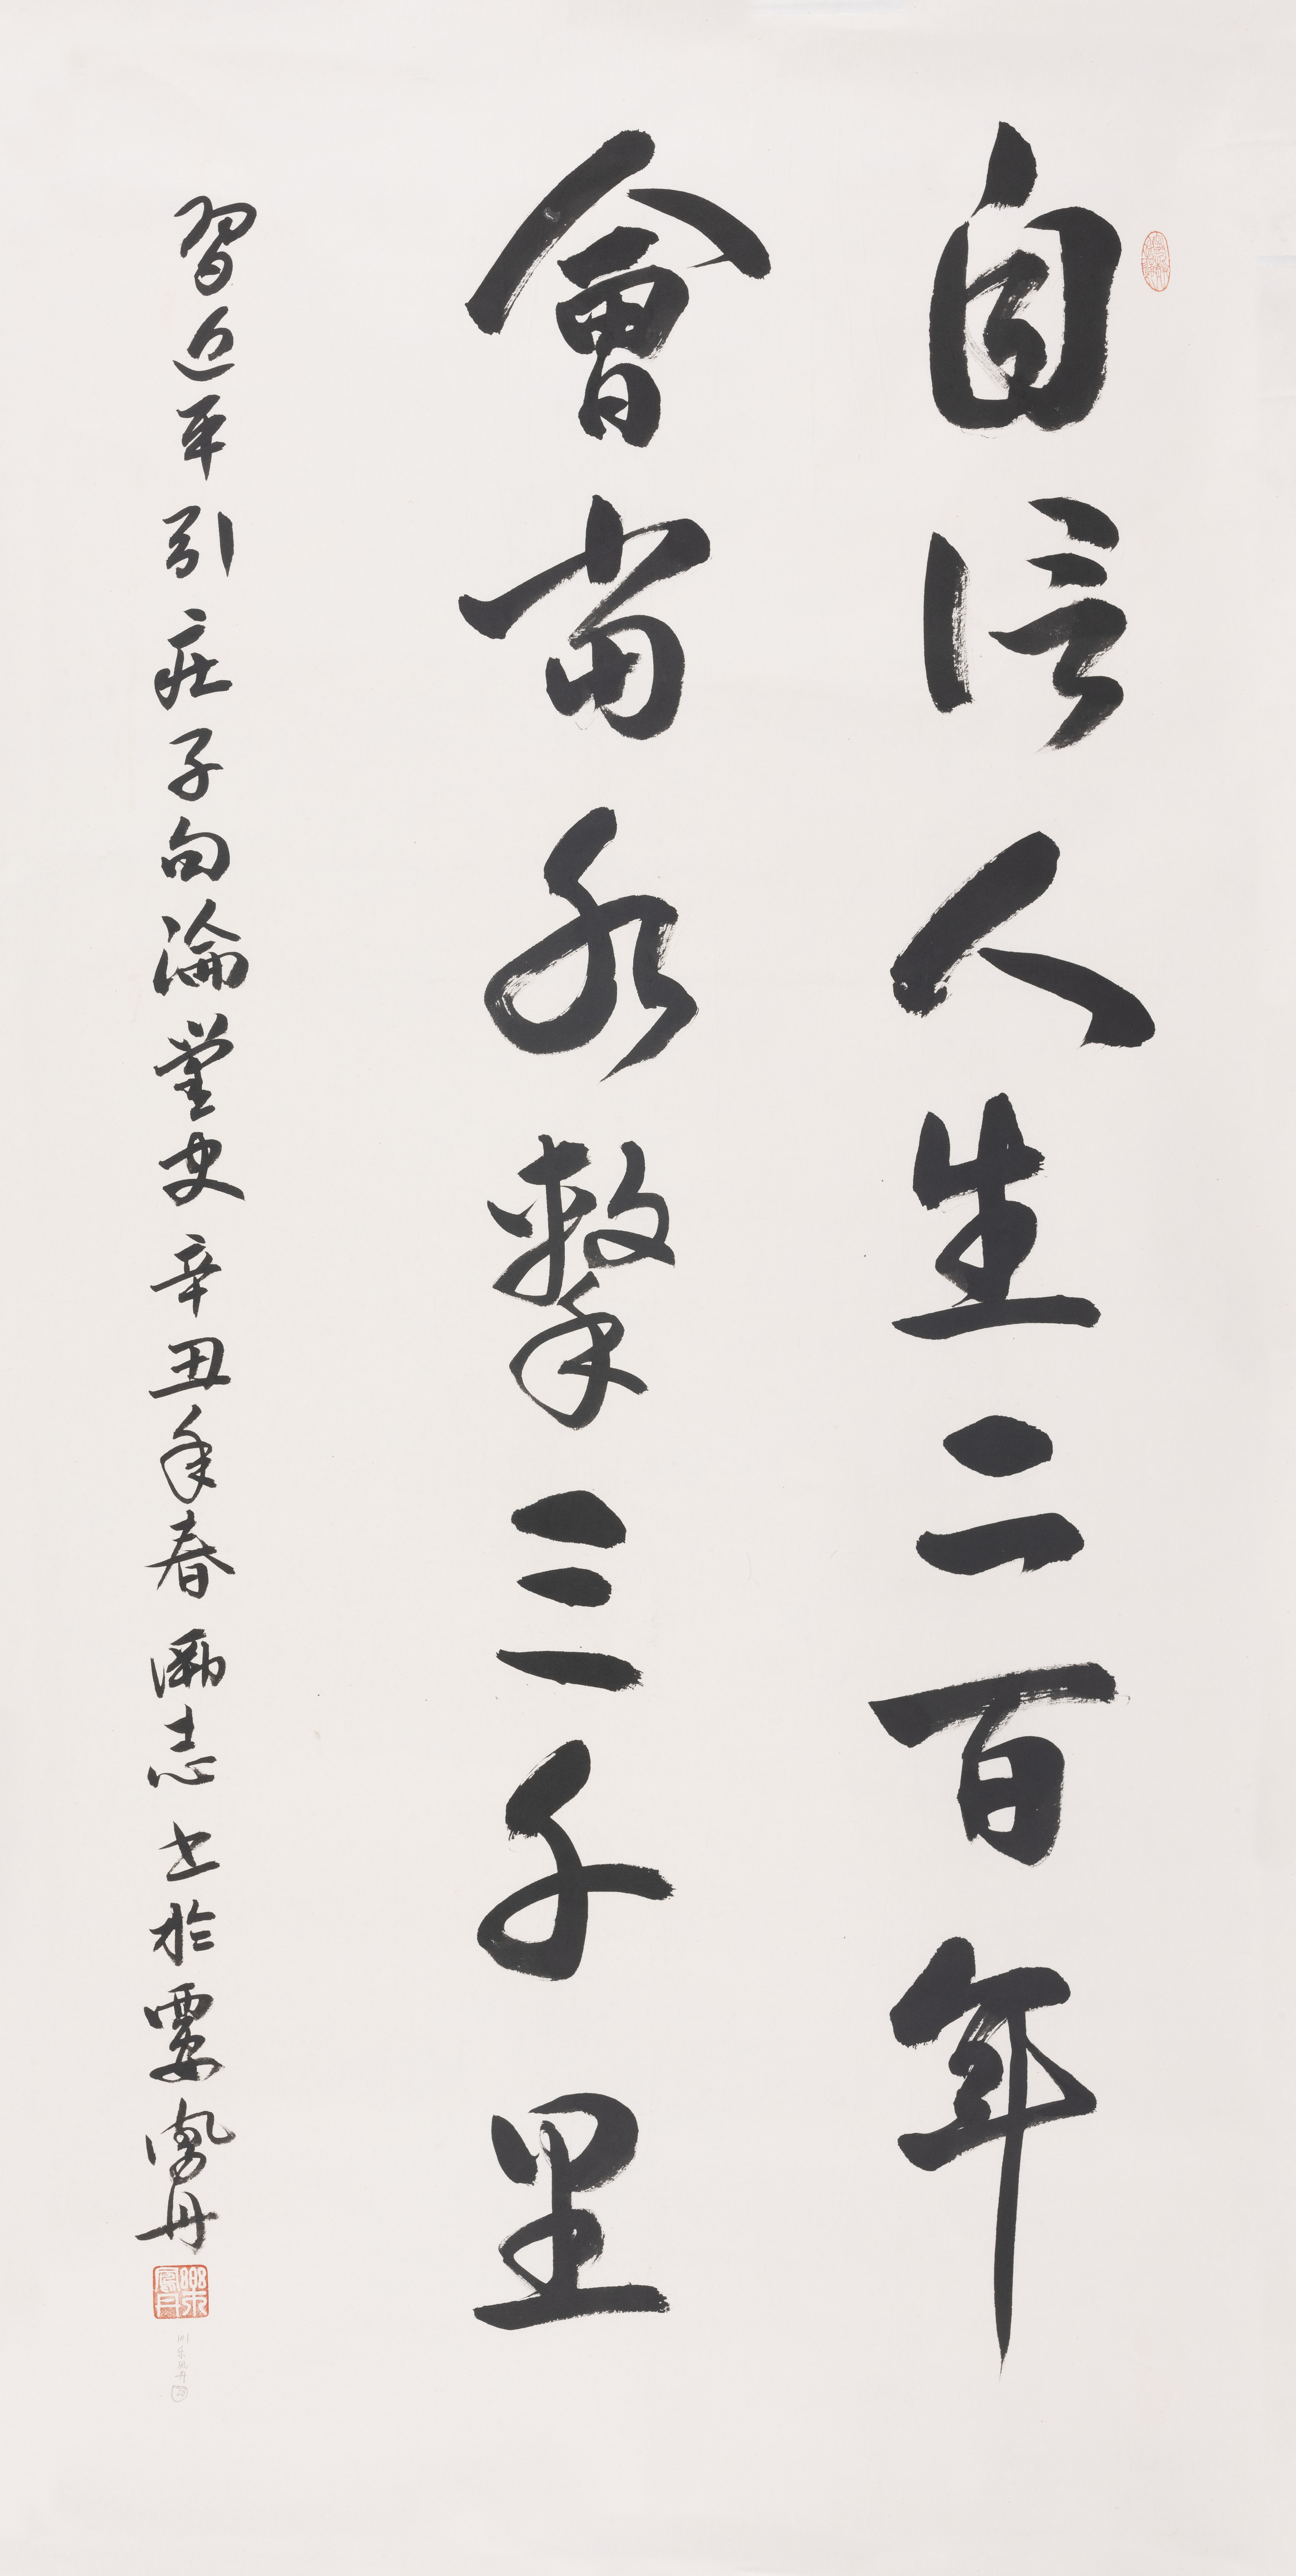 自信人生二百年
會當水擊三千里
習近平引莊子句論黨史辛丑年春勵志書於雲鳳丹